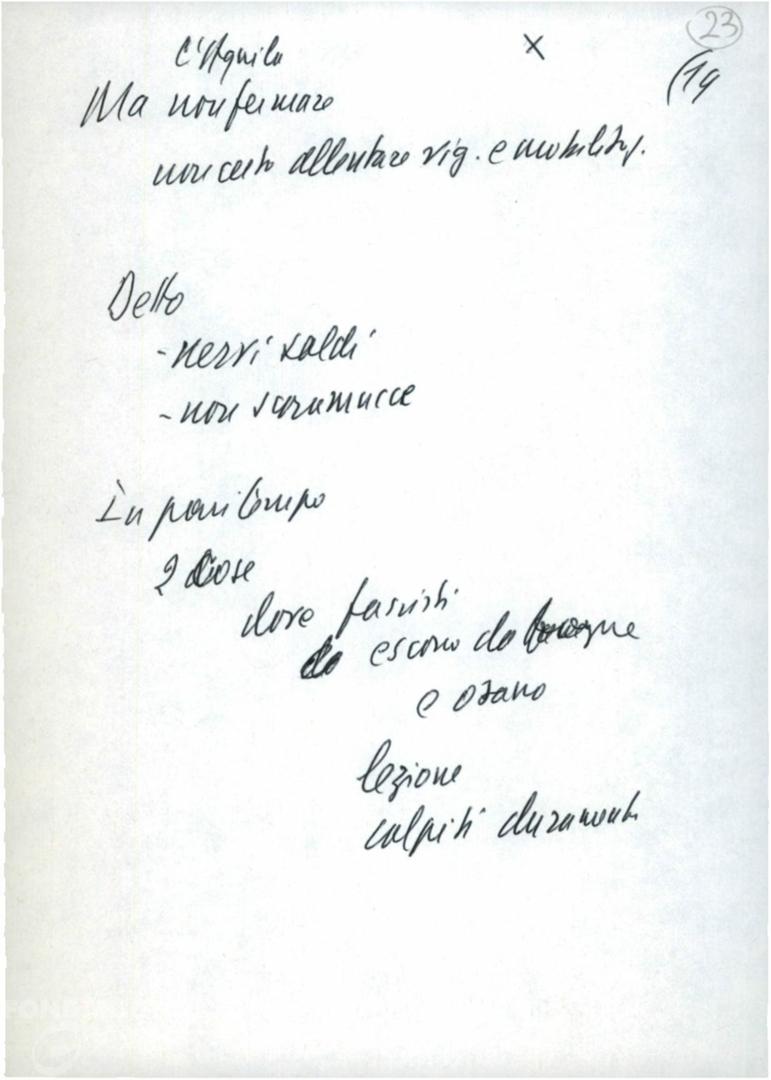 23
L'Aquila X
(19
Ma non fermare
non certo allentare vig. e mobilitaz.
Detto
- nervi saldi
- non scaramucce
In pari tempo
2 cose
dove fascisti
escono da fogne
e osano
lezione
colpiti duramente